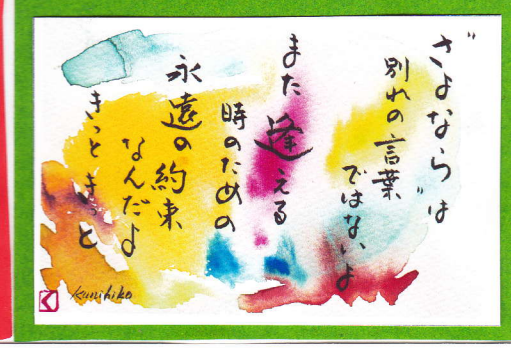 "さよなら"は
別れの言葉
ではないよ
また逢える
時のための
永遠の約束
なんだよ
きっと きっと
Kunihiko